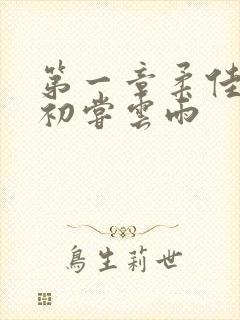 第一章柔佳
初嘗雲雨
鳥生莉世